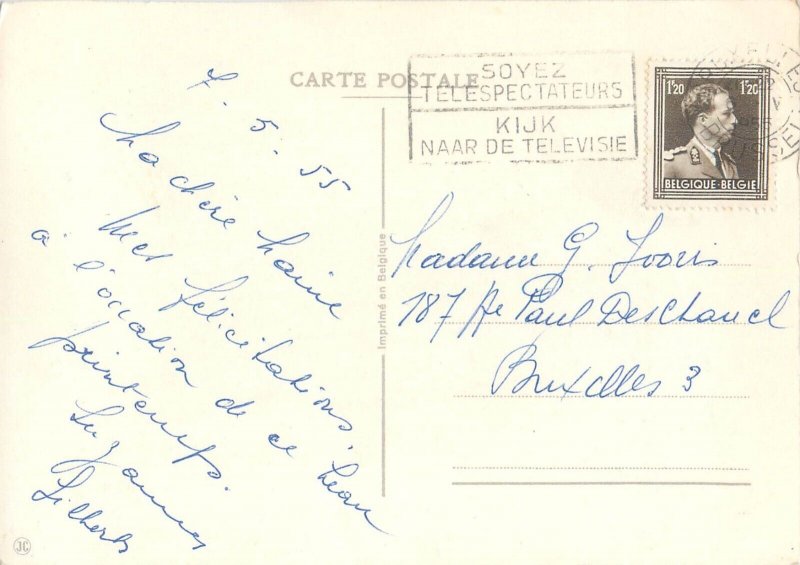 CARTE POSTALE
SOYEZ
TELESPECTATEURS
KIJK
NAAR DE TELEVISIE
1F20 1F20
BELGIQUE·BELGIE
7. 5. 55
Ma chère Marraine
Mes félicitations,
à l'occasion de ce beau
printemps.
Suzanne
Gilberte
Imprimé en Belgique
Madame G. Jooris
187 Av Paul Deschanel
Bruxelles 3
JC